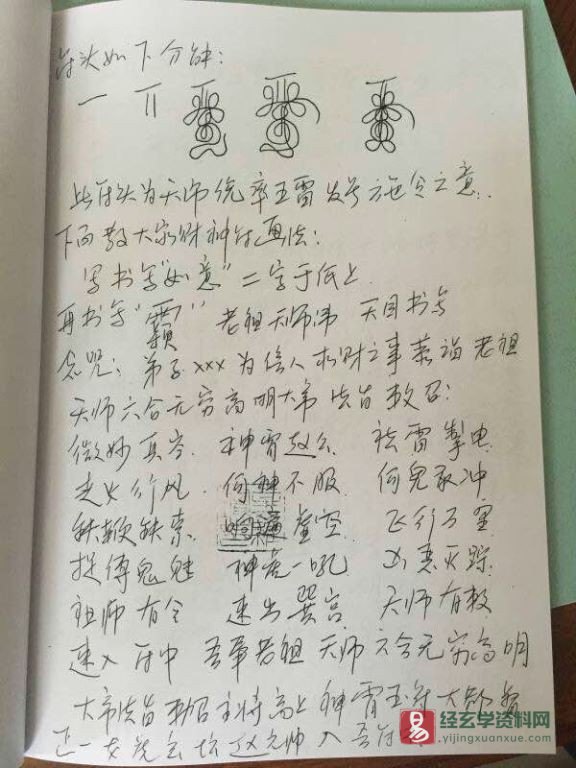 符头如下分解：
一 〢
此符头为天师统率五雷发号施令之意．
下面教大家财神符画法：
写书写“如意”二字于纸上
再书写“霸” 老祖天师讳 天目书写
念咒：弟子xxx为信人求财之事 恭请老祖
天师六合无穷高明大帝 法旨敕召：
微妙真空． 神霄赵公 袪雷掣电
走火行风． 何神不服 何鬼敢冲
铁鞭铁索． 虚空 飞行万里
捉缚鬼魅 神虎一吼 凶恶灭踪
祖师有令 速出巽宫 天师有敕
速入符中 吾奉老祖天师六合无穷高明
大帝法旨敕召主将高上神霄玉府大都督
正一玄坛赵元帅入吾符
经玄学资料网
www.yijingxuanxue.com